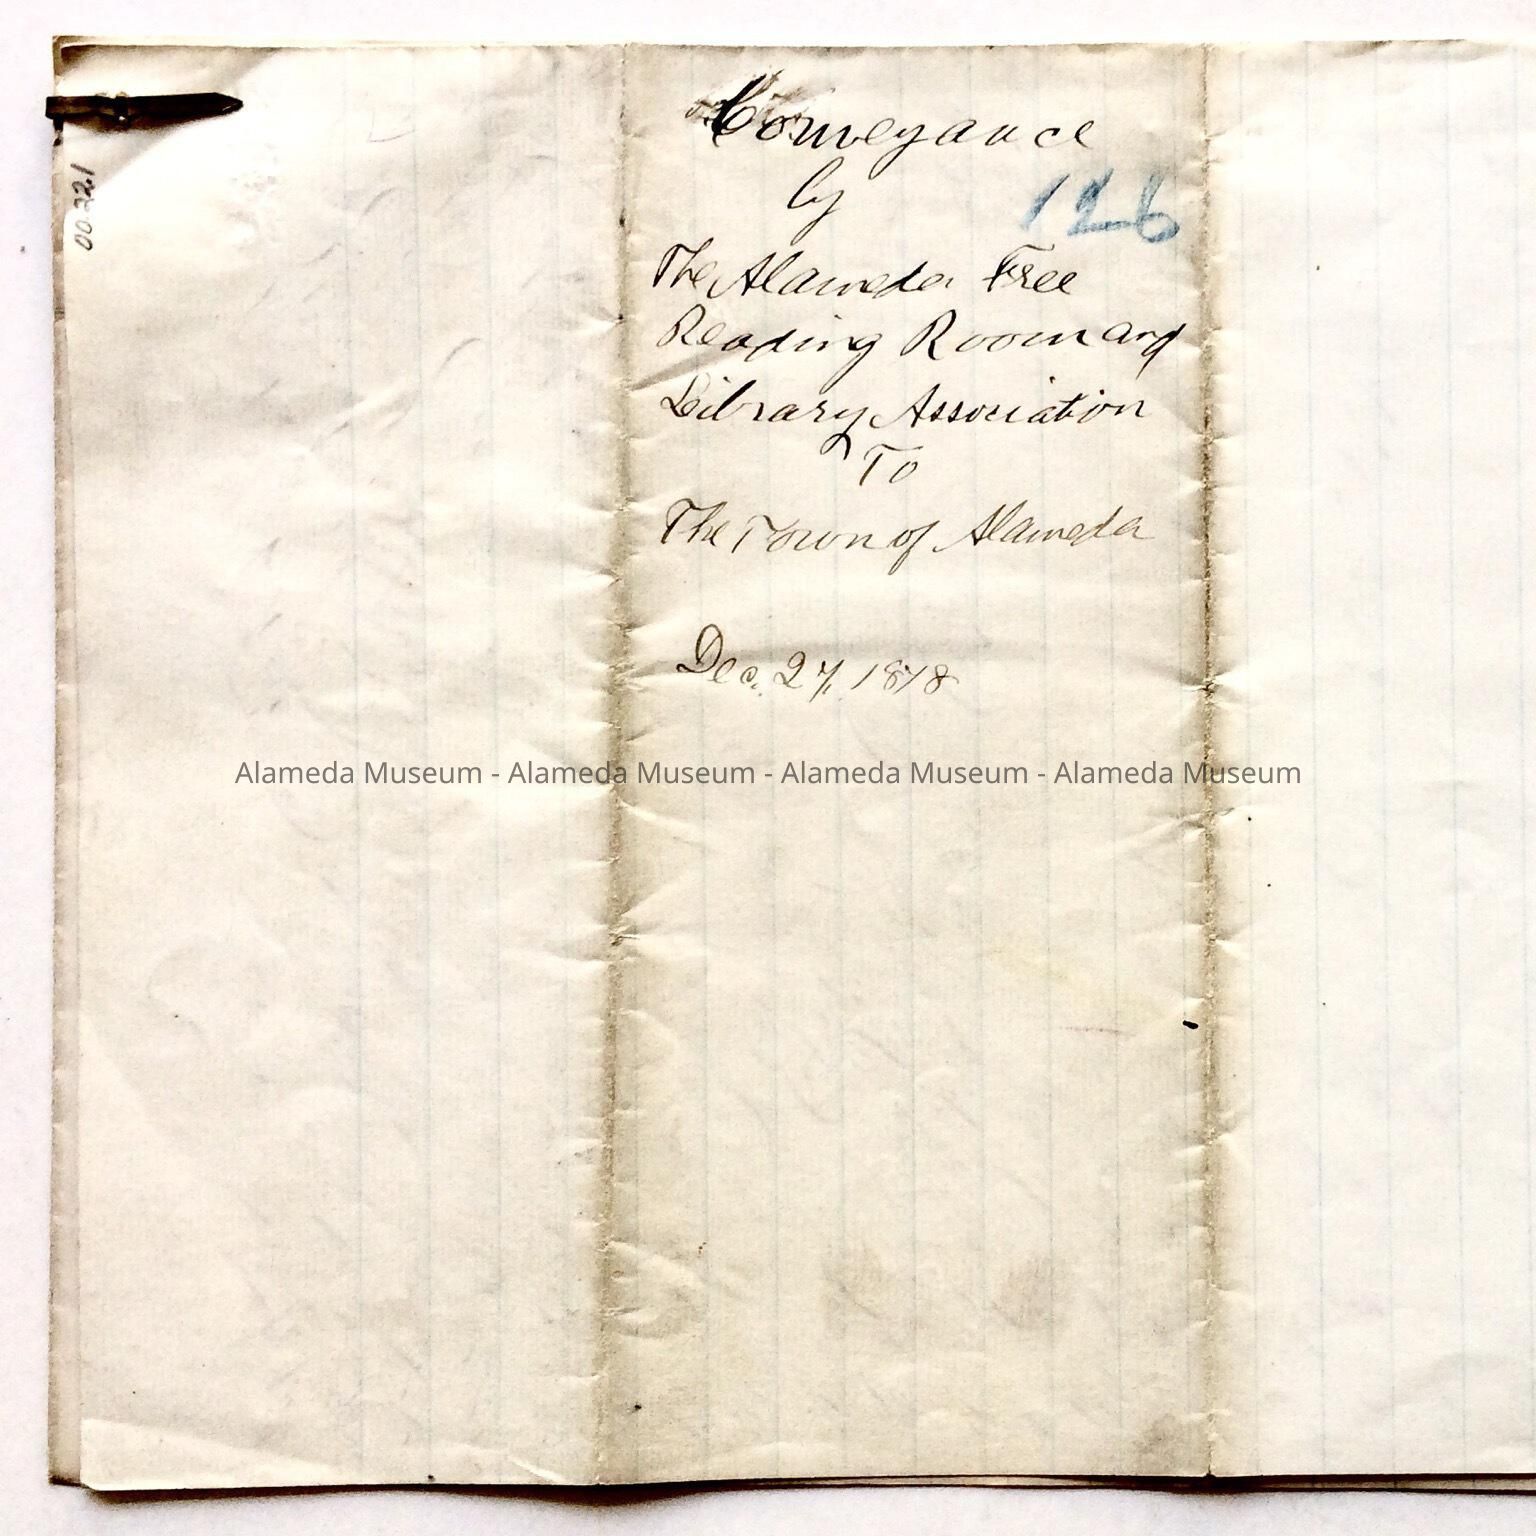 Conveyance
by
126
The Alameda Free
Reading Room and
Library Association
To
The Town of Alameda
Dec. 27, 1878
Alameda Museum - Alameda Museum - Alameda Museum - Alameda Museum
00.221